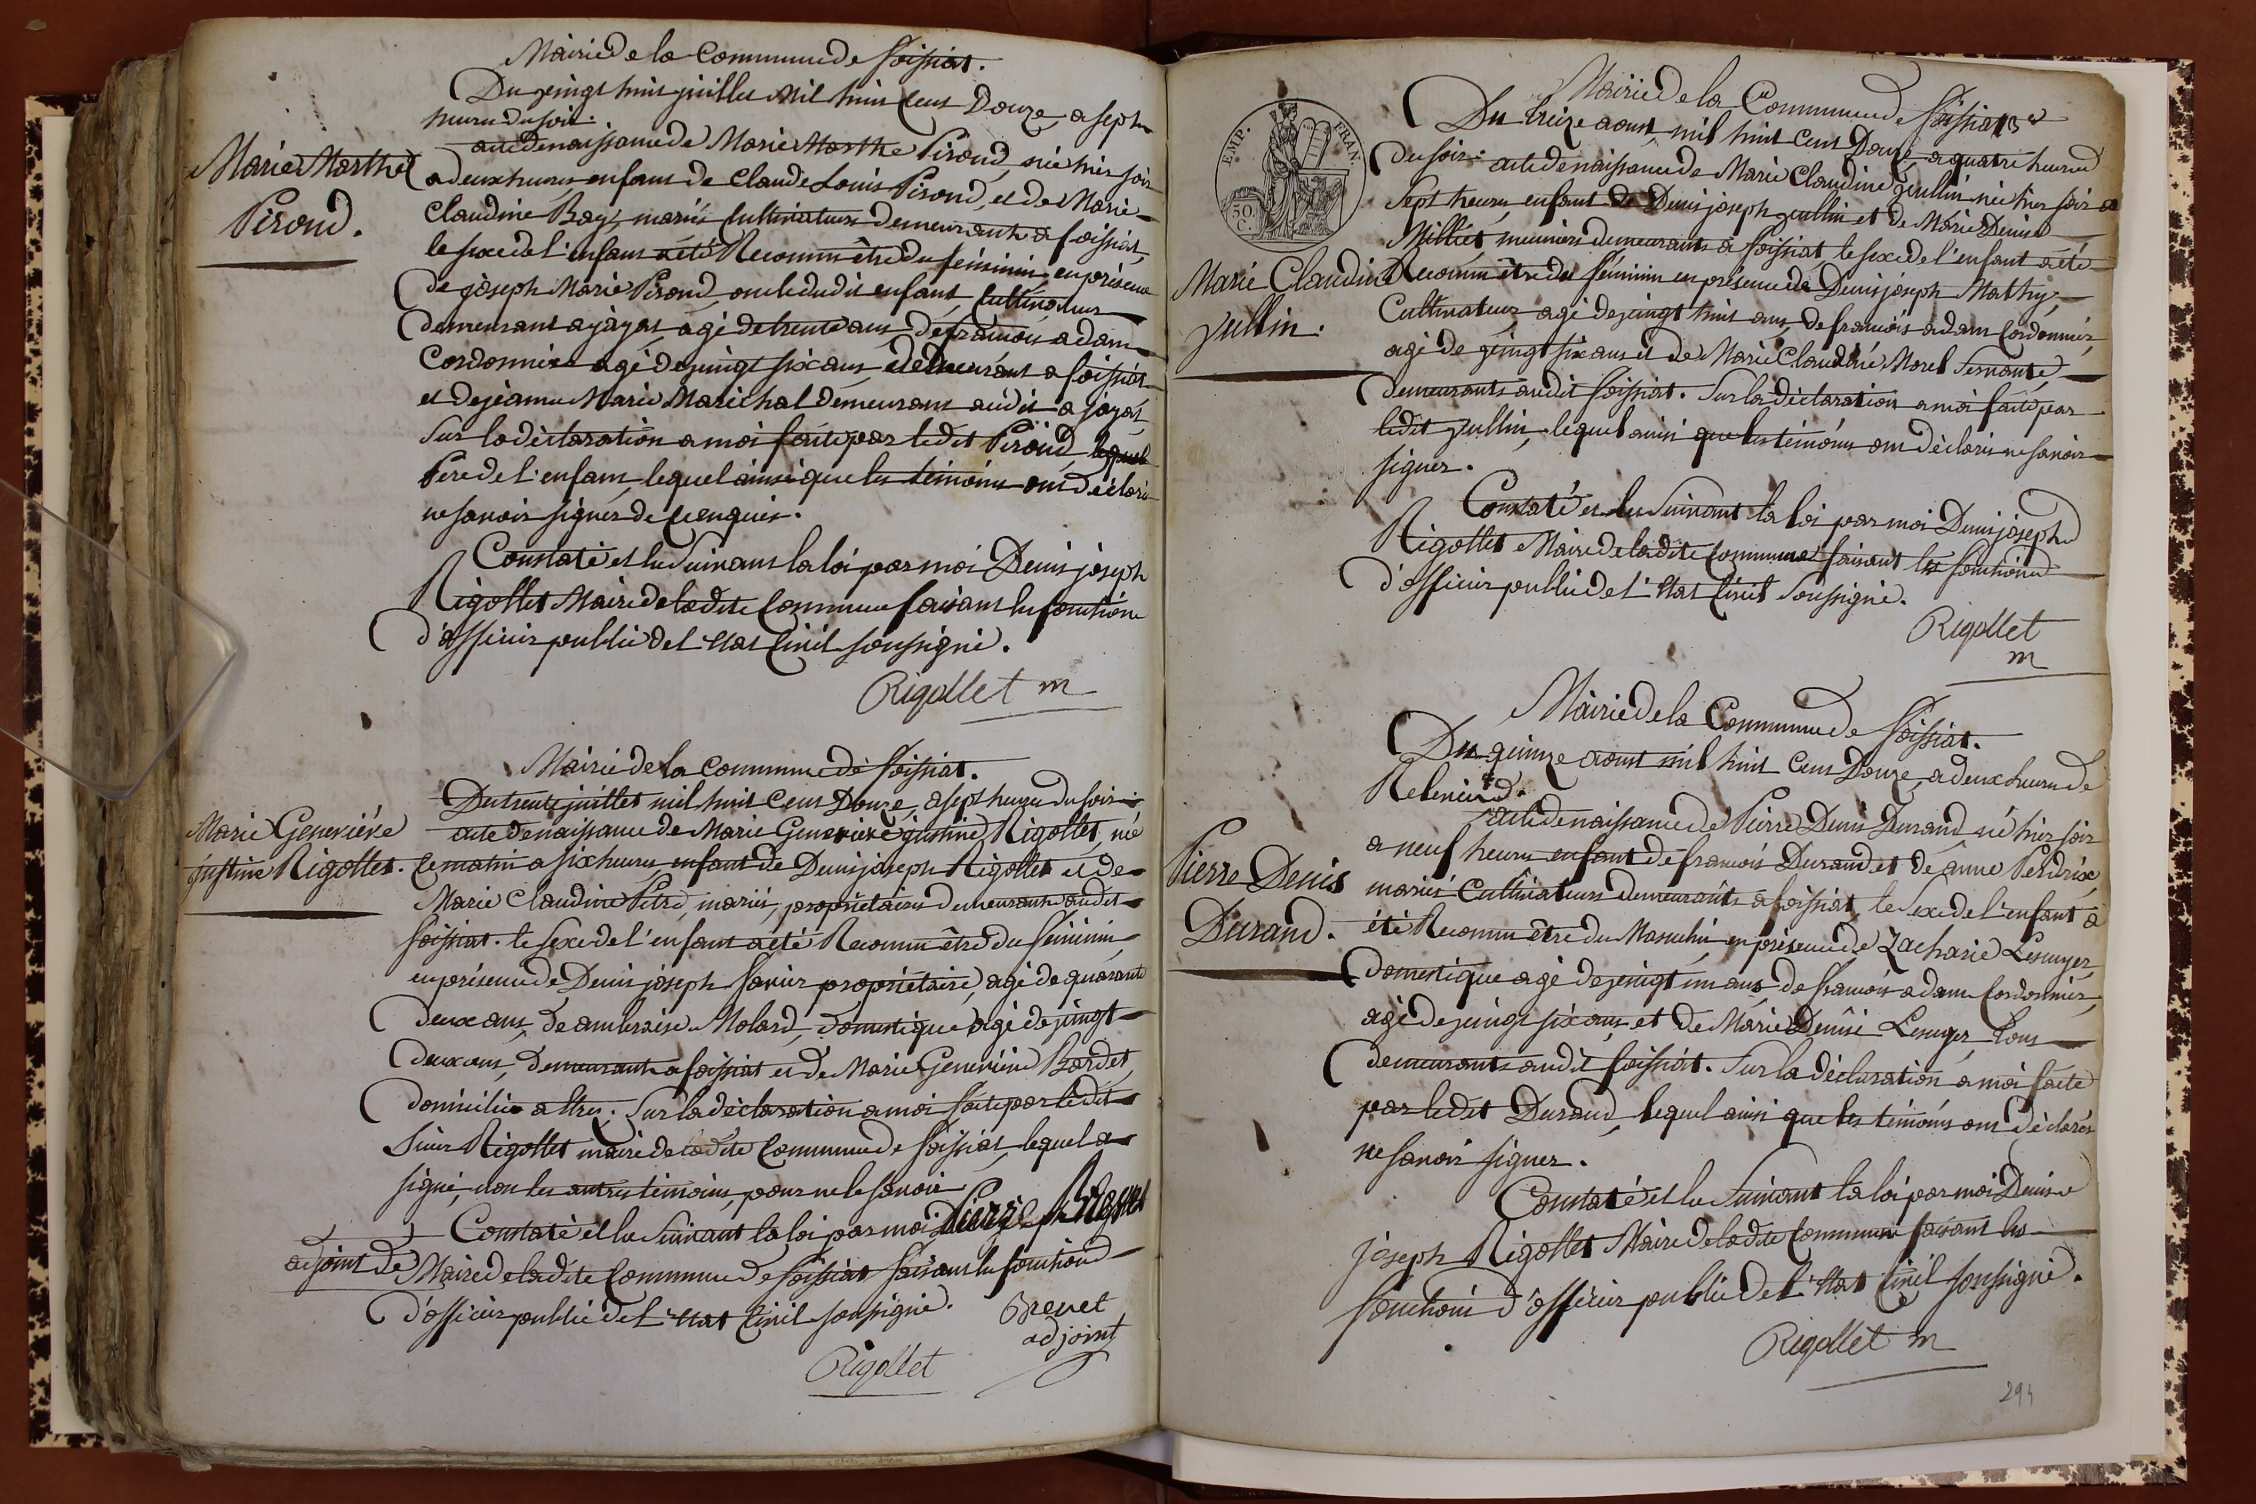 Mairie de la Commune de foissiat.
Du vingt huit juillet Mil huit Cent Douze, a sept
heures du soir.
acte de naissance de Marie Marthe Pirond, née hier soir
Marie Marthe
Pirond.
a deux heures enfant de Claude Louis Pirond, et de Marie
Claudine Bay, mariés Cultivateurs demeurants a foissiat,
le sexe de l'enfant a été Reconnu être du féminin, en présence
de joseph Marie Pirond, oncle dudit enfant, Cultivateur
demeurant a jayat, agé de trente ans, de françois adam
Cordonnier agé de vingt six ans, demeurant a foissiat
et de jeanne Marie Marichal demeurant audit a jayat,
Sur la déclaration a moi faite par ledit Pirond, lequel
Pere de l'enfant, lequel ainsi que les témoins ont déclaré
ne savoir signer de ce enquis.
Constaté et lu Suivant la loi par moi Denis joseph
Rigollet Maire de ladite Commune faisant les fonctions
d'officier public de l'état Civil soussigné.
Rigollet m
Mairie de la Commune de foissiat.
Du trente juillet mil huit Cent Douze, a sept heures du soir
Marie Geneviéve
justine Rigollet.
acte de naissance de Marie Genevieve justine Rigollet, né
Ce matin a six heures, enfant de Denis joseph Rigollet et de
Marie Claudine Pitre, mariés, propriétaires demeurants audit
foissiat. le sexe de l'enfant a été Reconnu être du féminin
en présence de Denis joseph favier propriétaire, agé de quarante
deux ans, de ambroise Molard, domestique agé de vingt
deux ans, demeurants a foissiat et de Marie Genevieve Bordet,
domiciliée a Etrez. Sur la déclaration a moi faite par ledit
Sieur Rigollet maire de ladite Commune de foissiat, lequel a
signé, non les autres témoins, pour ne le savoir
Constaté et lu Suivant la loi par moi
adjoint de Maire de ladite Commune de foissiat faisant les fonctions
d'officier public de l'état Civil soussigné.
Brevet
adjoint
Rigollet
EMP. FRAN.
50
C.
Mairie de la Commune de foissiat
Du treize aoust mil huit Cent Douze, a quatre heures
du soir. acte de naissance de Marie Claudine jullin née hier soir a
Sept heures, enfant de Denis joseph jullin et de Marie Denise
Milliet, meuniers demeurants a foissiat, le sexe de l'enfant a été
Marie Claudine
jullin.
Reconnu être du féminin en présence de Denis joseph Mathy,
Cultivateur agé de vingt huit ans, de françois adam Cordonnier,
agé de vingt six ans et de Marie Claudine Morel Servante,
demeurants audit foissiat. Sur la déclaration a moi faite par
ledit jullin, lequel ainsi que les témoins ont déclaré ne savoir
signer.
Constaté et lu Suivant la loi par moi Denis joseph
Rigollet Maire de ladite Commune faisant les fonctions
d'officier public de l'état Civil Soussigné.
Rigollet
m
Mairie de la Commune de foissiat.
Du quinze aoust mil huit Cent Douze, a deux heures de
Relevée.
acte de naissance de Pierre Denis Durand, né hier soir
Pierre Denis
Durand.
a neuf heures enfant de françois Durand et de anne Perdrix,
mariés Cultivateurs demeurants a foissiat, le Sexe de l'enfant a
été Reconnu être du Masculin, en présence de Zacharie Lesuyer,
domestique agé de vingt un ans, de françois adam Cordonnier,
agé de vingt six ans, et de Marie Denise Lesuyer, tous
demeurants audit foissiat. Sur la déclaration a moi faite
par ledit Durand, lequel ainsi que les témoins ont déclarés
ne savoir signer.
Constaté et lu Suivant la loi par moi Denis
joseph Rigollet Maire de ladite Commune faisant les
fonctions d'officier public de l'état Civil soussigné.
Rigollet m
294